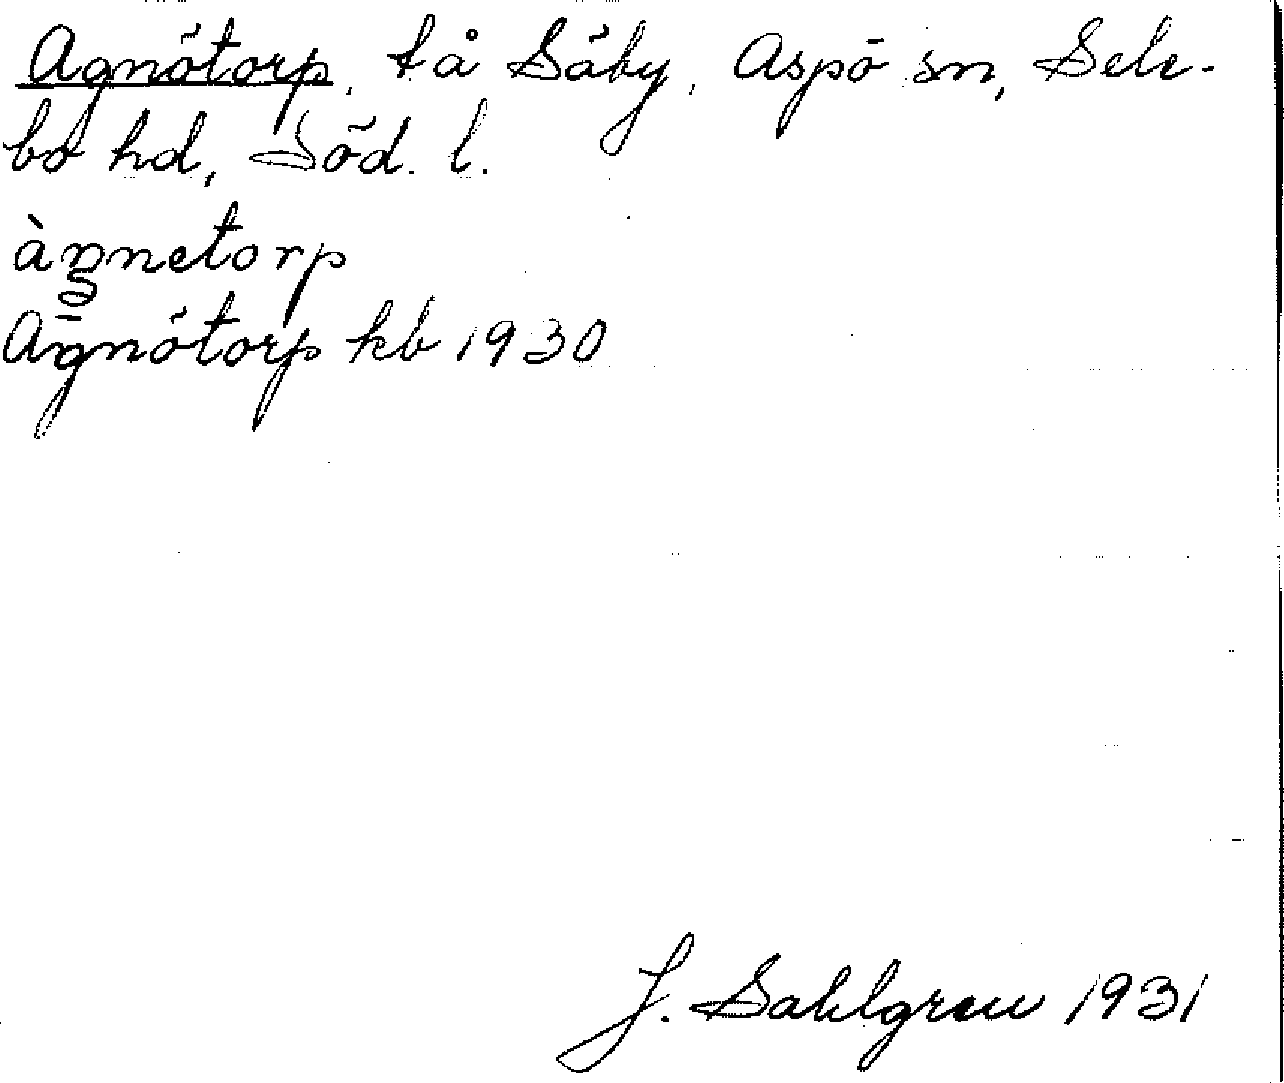 Agnötorp, tå Säby, Aspö sn, Sele-
bo hd, Söd. l.
àŋnetorp
Agnötorp kb 1930
J. Sahlgren 1931